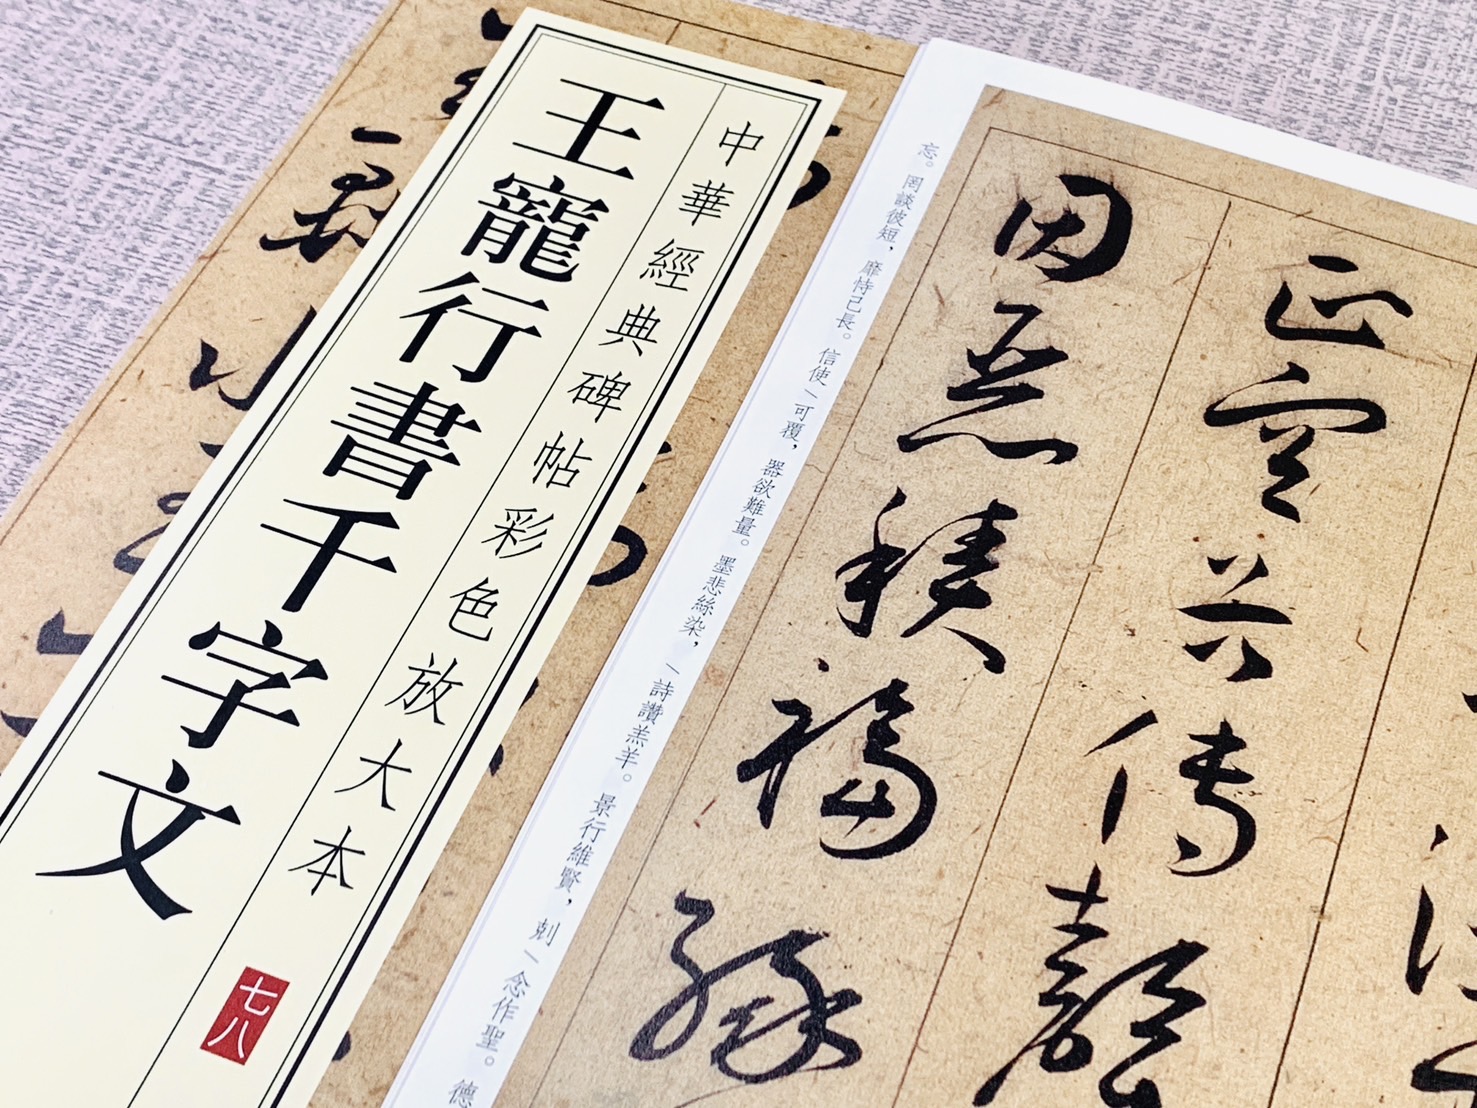 中華經典碑帖彩色放大本
王寵行書千字文
七八
正空谷傳聲
因惡積福緣
忘。罔談彼短，靡恃己長。信使\可覆，器欲難量。墨悲絲染，\詩讚羔羊。景行維賢，剋\念作聖。德